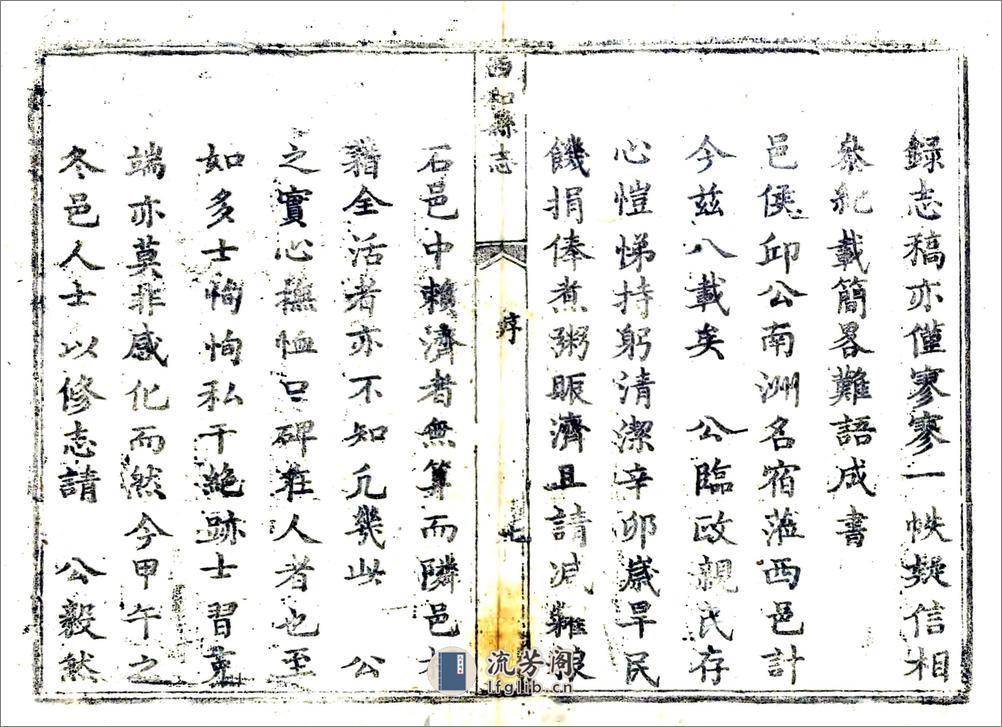 録志稿亦僅寥寥一帙擬信相
叅紀載簡畧難語成書
邑侯邱公南洲名宿蒞西邑計
今茲八載矣 公臨政親民存
心愷悌持躬清潔辛卯歲旱民
饑捐俸煮粥賑濟且請减糴粮
西和縣志
序
七
石邑中賴濟者無算而隣邑
藉全活者亦不知凡幾此 公
之實心撫恤口碑在人者也至
如多士恂恂私干絕跡士習
端亦莫非感化而然今甲午之
冬邑人士以修志請 公毅然
流芳阁
lfglib.cn